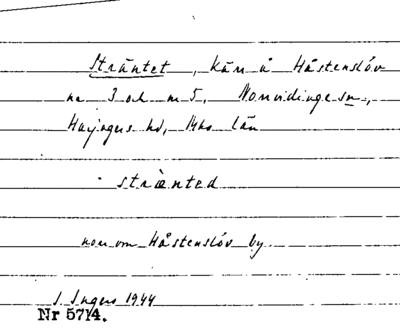 Sträntet, kärr å Håstenslöv
nr 3 och nr 5, Norrvidinge sn,
Harjagers hd, Mhs län
stræ̀nted
norr om Håstenslöv by
I. Ingers 1944
Nr 5714.